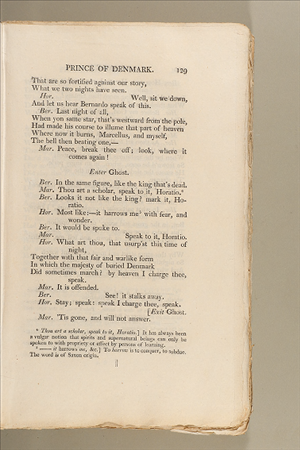 PRINCE OF DENMARK. 129
That are so fortified against our story,
What we two nights have seen.
Hor. Well, sit we down,
And let us hear Bernardo speak of this.
Ber. Last night of all,
When yon same star, that's westward from the pole,
Had made his course to illume that part of heaven
Where now it burns, Marcellus, and myself,
The bell then beating one,—
Mar. Peace, break thee off; look, where it
comes again!
Enter Ghost.
Ber. In the same figure, like the king that's dead.
Mar. Thou art a scholar, speak to it, Horatio.*
Ber. Looks it not like the king? mark it, Ho-
ratio.
Hor. Most like:—it harrows me* with fear, and
wonder.
Ber. It would be spoke to.
Mar. Speak to it, Horatio.
Hor. What art thou, that usurp'st this time of
night,
Together with that fair and warlike form
In which the majesty of buried Denmark
Did sometimes march? by heaven I charge thee,
speak.
Mar. It is offended.
Ber. See! it stalks away.
Hor. Stay; speak: speak I charge thee, speak.
[Exit Ghost.
Mar. 'Tis gone, and will not answer.
* Thou art a scholar, speak to it, Horatio.] It has always been
a vulgar notion that spirits and supernatural beings can only be
spoken to with propriety or effect by persons of learning.
* —— it harrows me, &c.] To harrow is to conquer, to subdue.
The word is of Saxon origin.